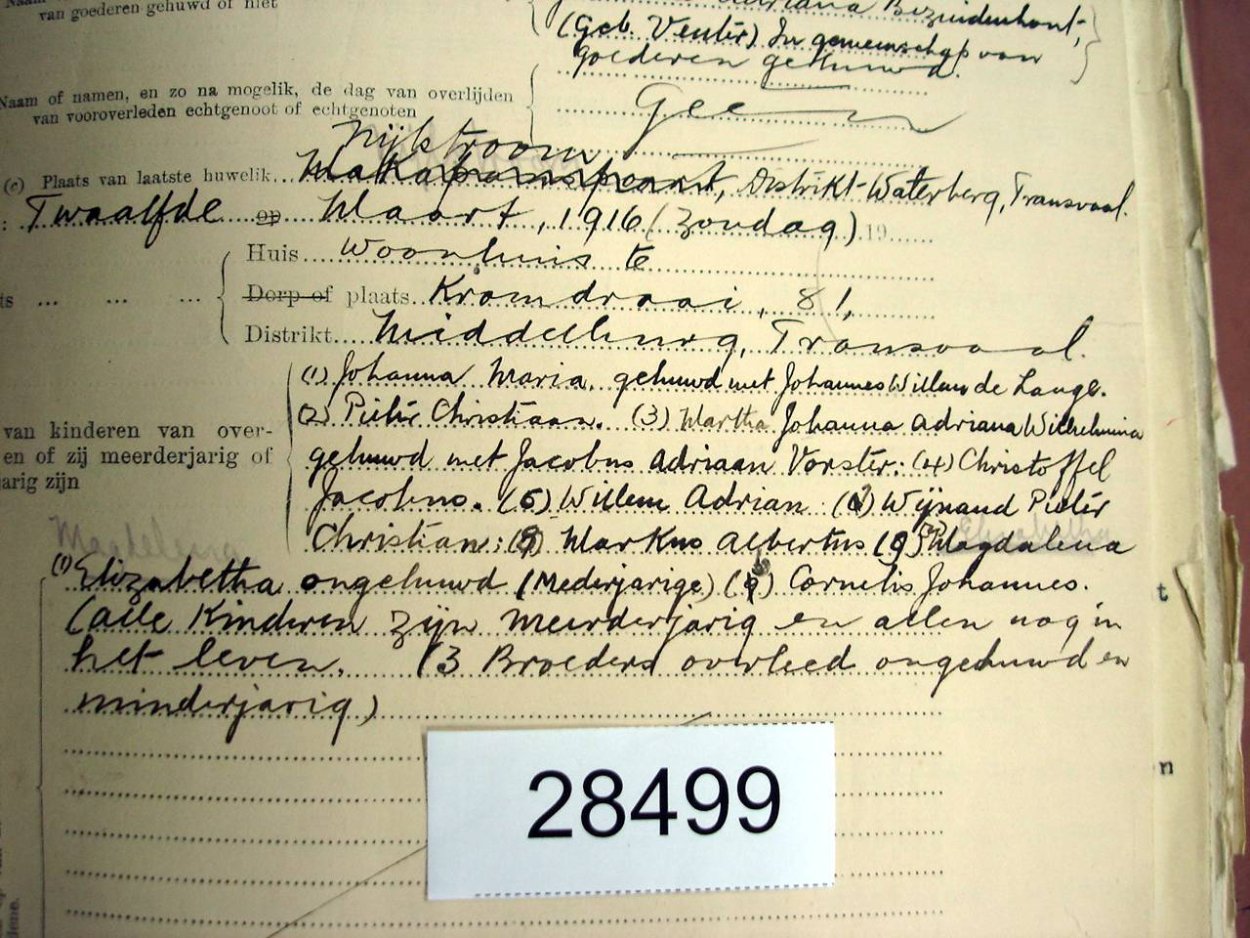 van goederen gehuwd of niet
Adriana Bezuidenhout,
(geb. Venter) In gemeenschap van
goederen gehuwd.
Naam of namen, en zo na mogelik, de dag van overlijden
van vooroverleden echtgenoot of echtgenoten
Geen
Nijlstroom
(c) Plaats van laatste huwelik... Makapanspoort, Distrikt Waterberg, Transvaal.
: Twaalfde op Maart, 1916 (Zondag) 19
Huis... Woonhuis te
ts ... ... ... Dorp of plaats. Kromdraai, 81,
Distrikt... Middelburg, Transvaal.
(1) Johanna Maria, gehuwd met Johannes Willem de Lange.
(2) Pieter Christiaan. (3) Martha Johanna Adriana Wilhelmina
van kinderen van over-
gehuwd met Jacobus Adriaan Vorster: (4) Christoffel
en of zij meerderjarig of
arig zijn
Jacobus. (5) Willem Adrian: Wijnand Pieter
Christian: Markus Albertus Magdalena
Elizabetha ongehuwd (Mederjarige) Cornelis Johannes.
(alle Kinderen zijn meerderjarig en allen nog in
het leven. (3 Broeders overleed ongehuwd en
minderjarig)
t
n
28499